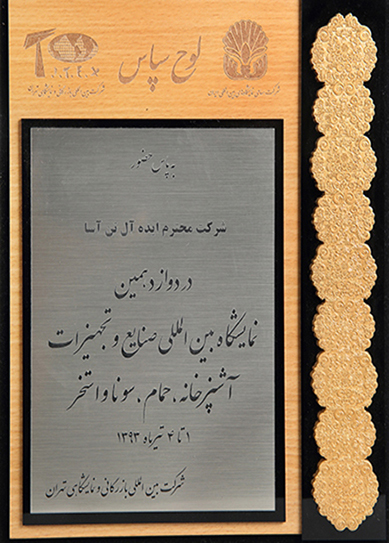 لوح سپاس
به پاس حضور
شرکت محترم ایده آل بن آسا
در دوازدهمین
نمایشگاه بین المللی صنایع و تجهیزات
آشپزخانه، حمام، سونا و استخر
۱ تا ۴ تیرماه ۱۳۹۳
شرکت بین المللی بازرگانی و نمایشگاهی تهران